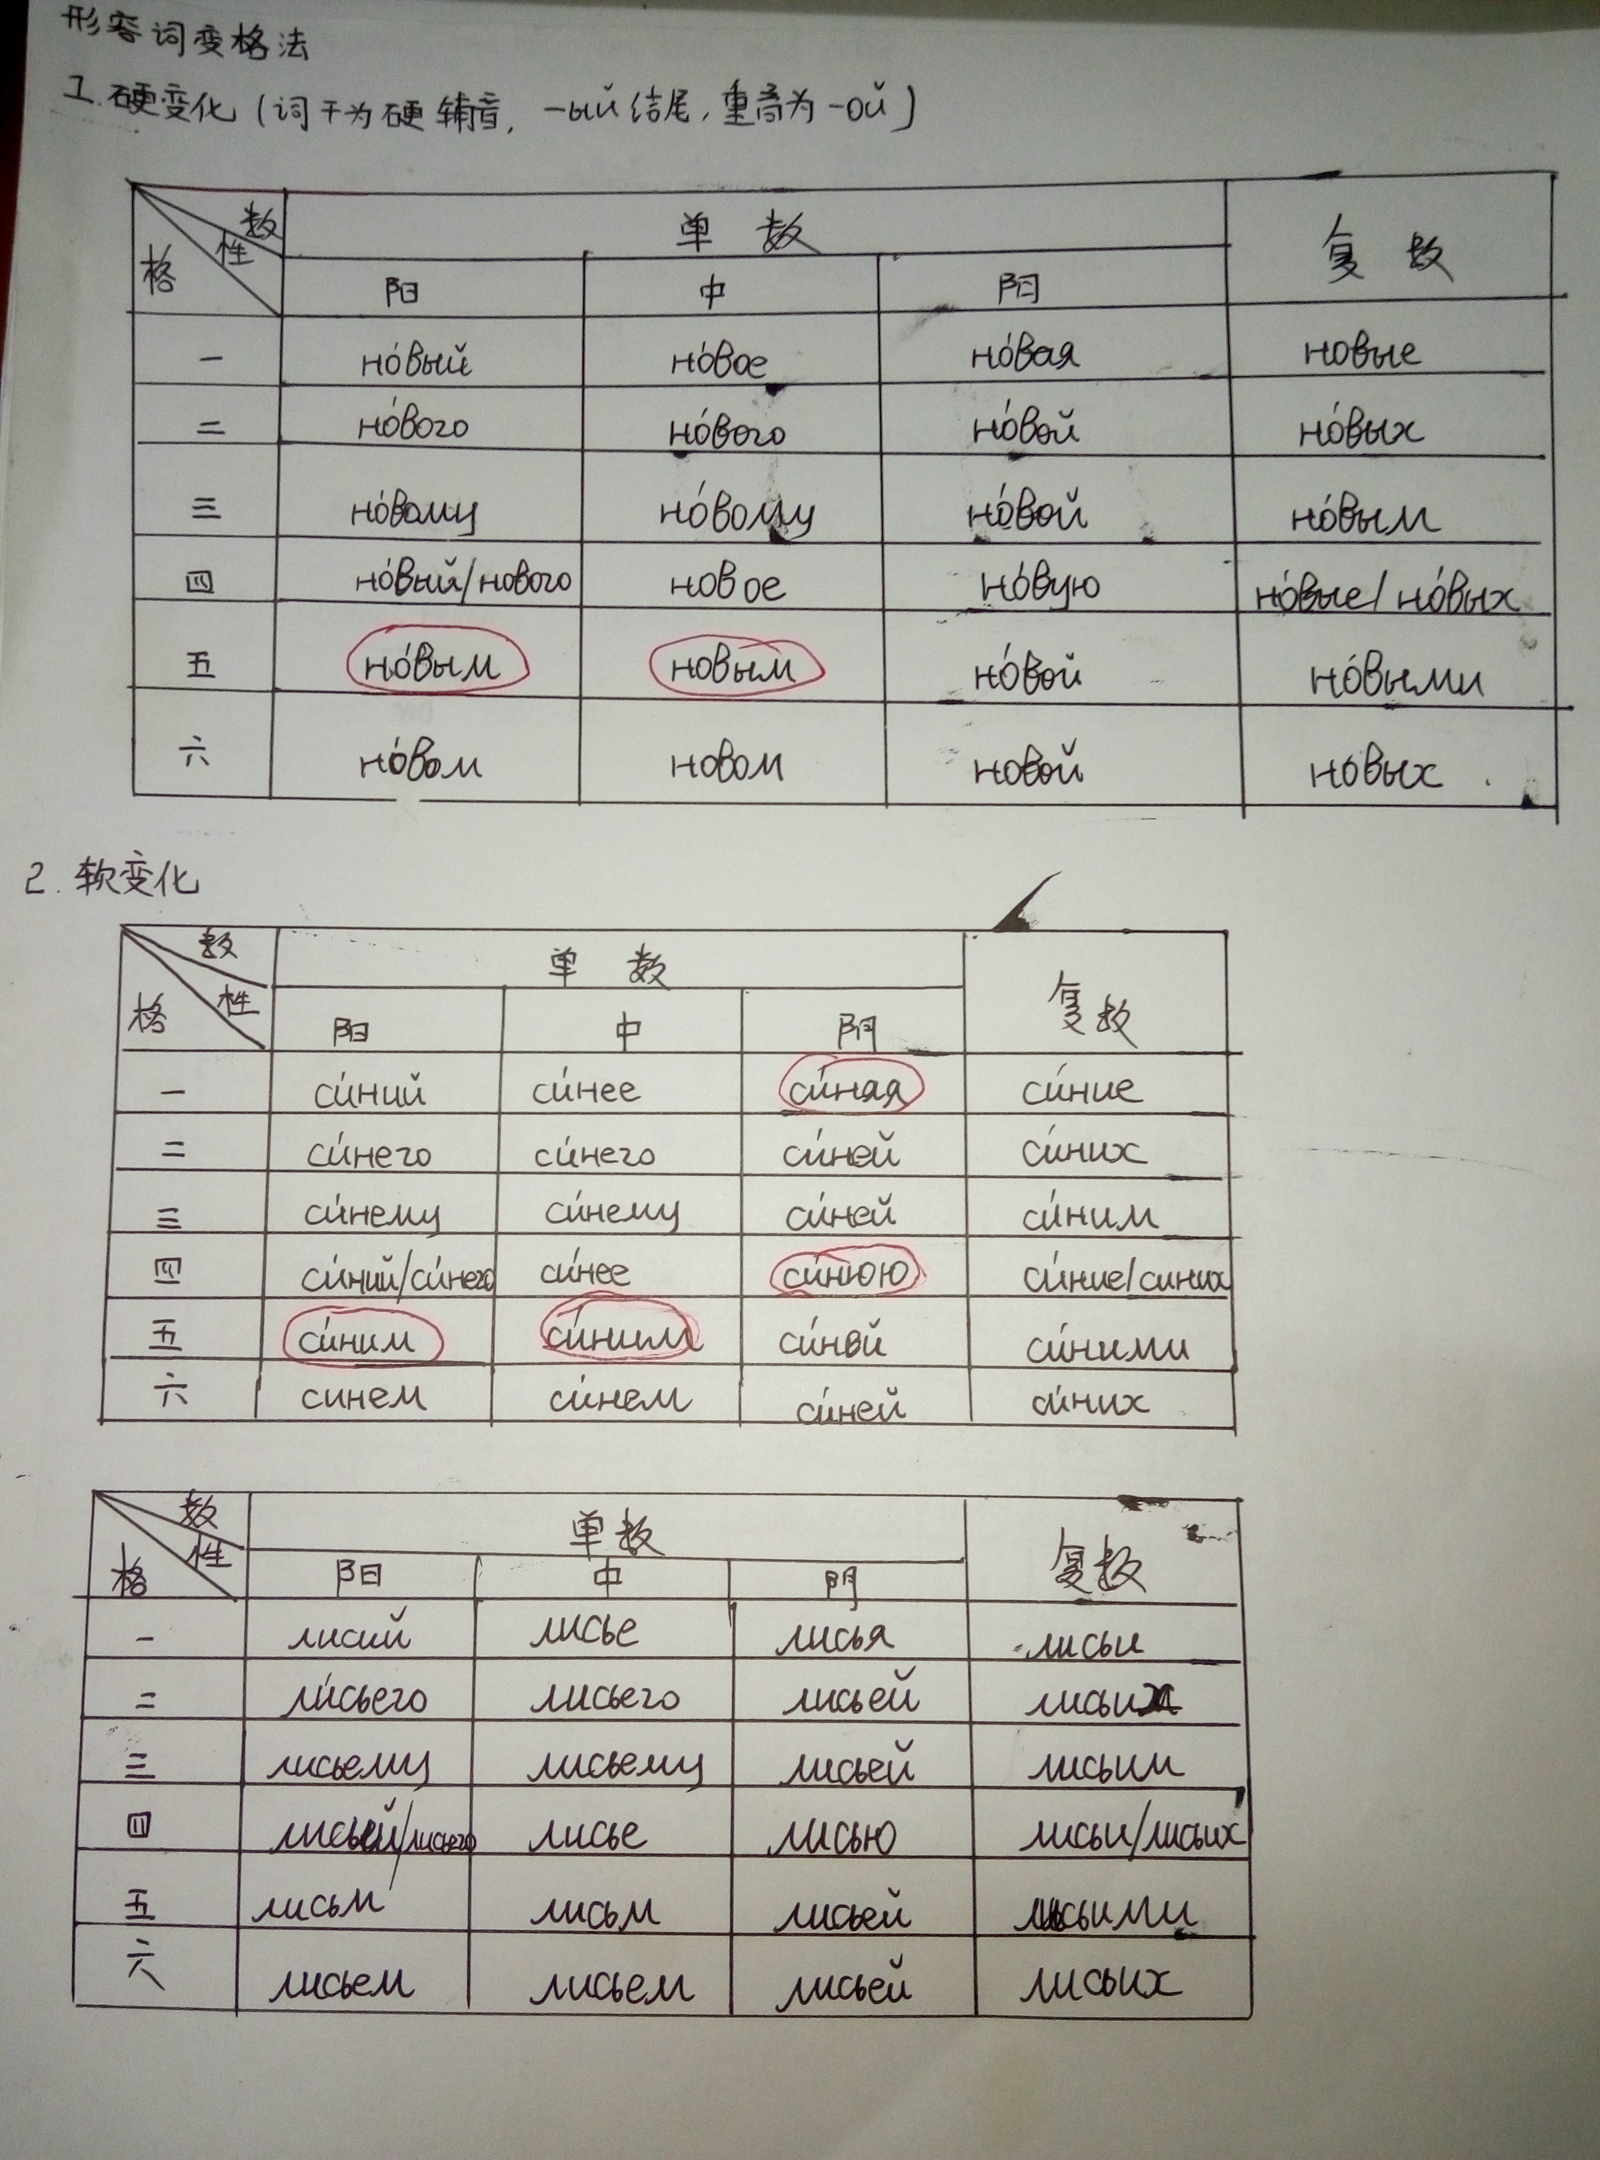 形容词变格法
1.硬变化(词干为硬辅音,-ый结尾,重音为-ой)
数 性 格 单数 复数
阳 中 阳
一 но́вый но́вое но́вая новые
二 но́вого но́вого но́вой но́вых
三 но́вому но́вому но́вой но́вым
四 но́вый/нового новое но́вую но́вые/но́вых
五 но́вым новым но́вой но́выми
六 но́вом новом новой новых
2.软变化
数 性 格 单数 复数
阳 中 阴
一 си́ний си́нее си́няя си́ние
二 си́него си́него си́ней си́них
三 си́нему си́нему си́ней си́ним
四 си́ний/си́него си́нее си́нюю си́ние/синих
五 си́ним си́ним си́ней си́ними
六 синем си́нем си́ней си́них
数 性 格 单数 复数
阳 中 阴
一 лисий лисье лисья лисьи
二 ли́сьего лисьего лисьей лисьих
三 лисьему лисьему лисьей лисьим
四 лисьей/лисьего лисье лисью лисьи/лисьих
五 лисьм лисьм лисьей лисьими
六 лисьем лисьем лисьей лисьих